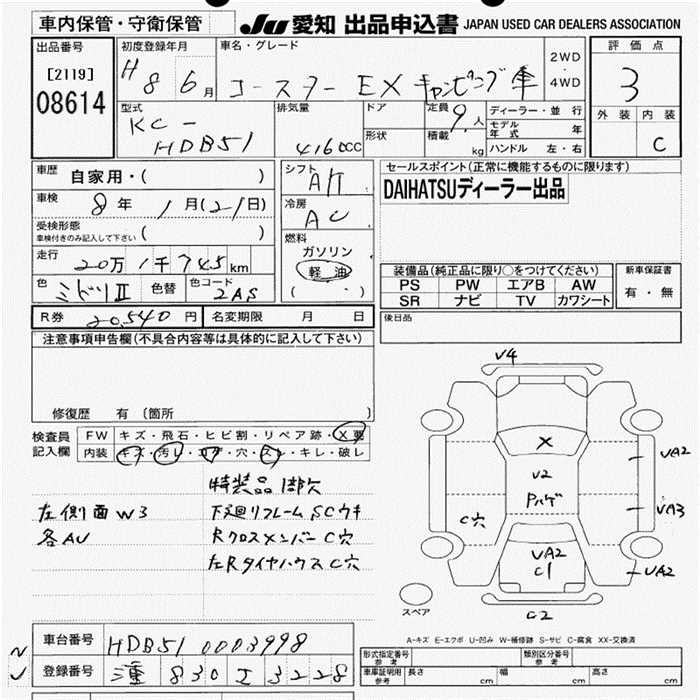 車内保管・守衛保管
JU 愛知 出品申込書 JAPAN USED CAR DEALERS ASSOCIATION
出品番号
[2119]
08614
初度登録年月
H8 6月
車名・グレード
コースター EX キャンピング車
2WD・4WD
評価点
3
外装 内装
C
型式
KC-
HDB51
排気量
4160CC
ドア
形状
定員 9人
積載 kg
ディーラー・並行
モデル年式 年
ハンドル 左・右
車歴 自家用・( )
車検 8年 1月(21日)
受検形態
車検付きのみ記入して下さい ( )
走行 20万1千745km
色 ミドリII 色替 色コード 2AS
R券 20,540円 名変期限 月 日
シフト AT
冷房 AC
燃料
ガソリン
軽油
( )
セールスポイント(正常に機能するものに限ります)
DAIHATSUディーラー出品
装備品(純正品に限り○をつけてください)
PS PW エアB AW
SR ナビ TV カワシート
新車保証書
有・無
後日品
注意事項申告欄(不具合内容等は具体的に記入して下さい)
修復歴 有 〔箇所 〕
検査員記入欄
FW キズ・飛石・ヒビ割・リペア跡・X要
内装 キズ・汚レ・コゲ・穴・スレ・キレ・破レ
特装品 損欠
左側面 W3
各AU
下廻リフレーム SCウキ
Rクロスメンバー C穴
左Rタイヤハウス C穴
V4
X
V2
Pハゲ
C穴
VA2
C1
VA2
VA3
VA2
C2
スペア
A-キズ E-エクボ U-凹み W-補修跡 S-サビ C-腐食 XX-交換済
車台番号 HDB51 0003998
登録番号 830 3228
型式指定番号 参考
類別区分番号 参考
車庫証明用 参考
長さ cm 幅 cm 高さ cm